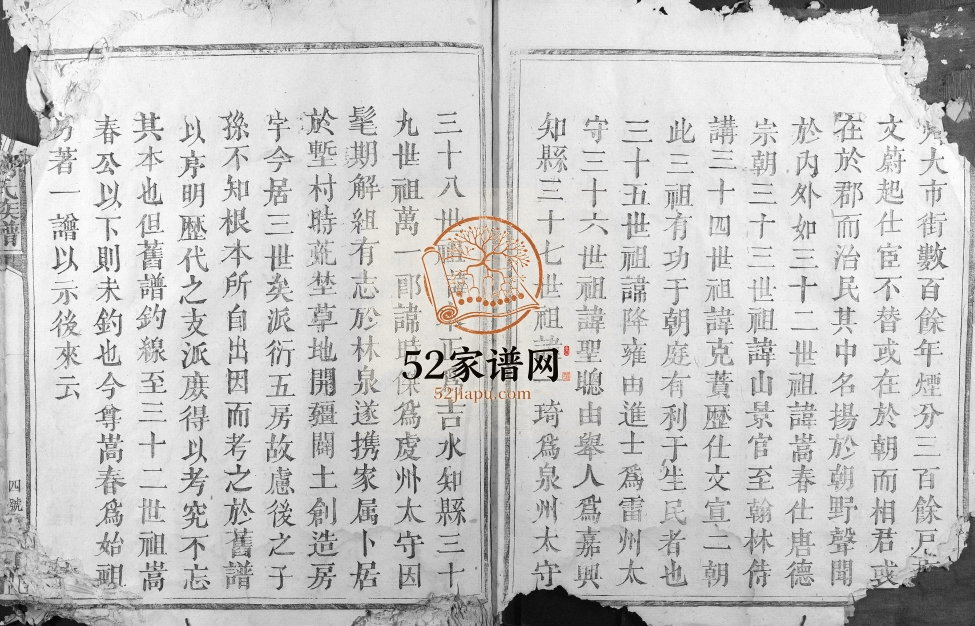 大市街數百餘年煙分三百餘戶
文蔚起仕宦不替或在於朝而相君或
在於郡而治民其中名揚於朝野聲聞
於內外如三十二世祖諱嵩春仕唐德
宗朝三十三世祖諱山景官至翰林侍
講三十四世祖諱克蕡歷仕文宣二朝
此三祖有功于朝庭有利于生民者也
三十五世祖諱降雍由進士爲雷州太
守三十六世祖諱聖聰由舉人爲嘉興
知縣三十七世祖諱琦爲泉州太守
三十八世祖諱正吉水知縣三十
九世祖萬一郎諱時保爲虔州太守因
髦期解組有志於林泉遂携家属卜居
於塹村時荒埜草地開疆闢土創造房
宇今居三世矣派衍五房故慮後之子
孫不知根本所自出因而考之於舊譜
以序明歷代之支派庶得以考究不忘
其本也但舊譜鈞線至三十二世祖嵩
春公以下則未鈞也今尊嵩春爲始祖
另著一譜以示後來云
氏族譜
四號
52家谱网
52jiapu.com